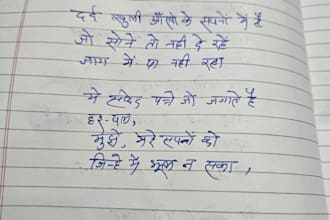 दर्द खुली आँखों के सपनों में है
जो सोने तो नही दे रहें
जाग में पा नही रहा
ये सफेद पन्ने जो जगाते है
हर-पल,
मुझे, मेरे सपनों को
जिन्हे में भूल न सका,